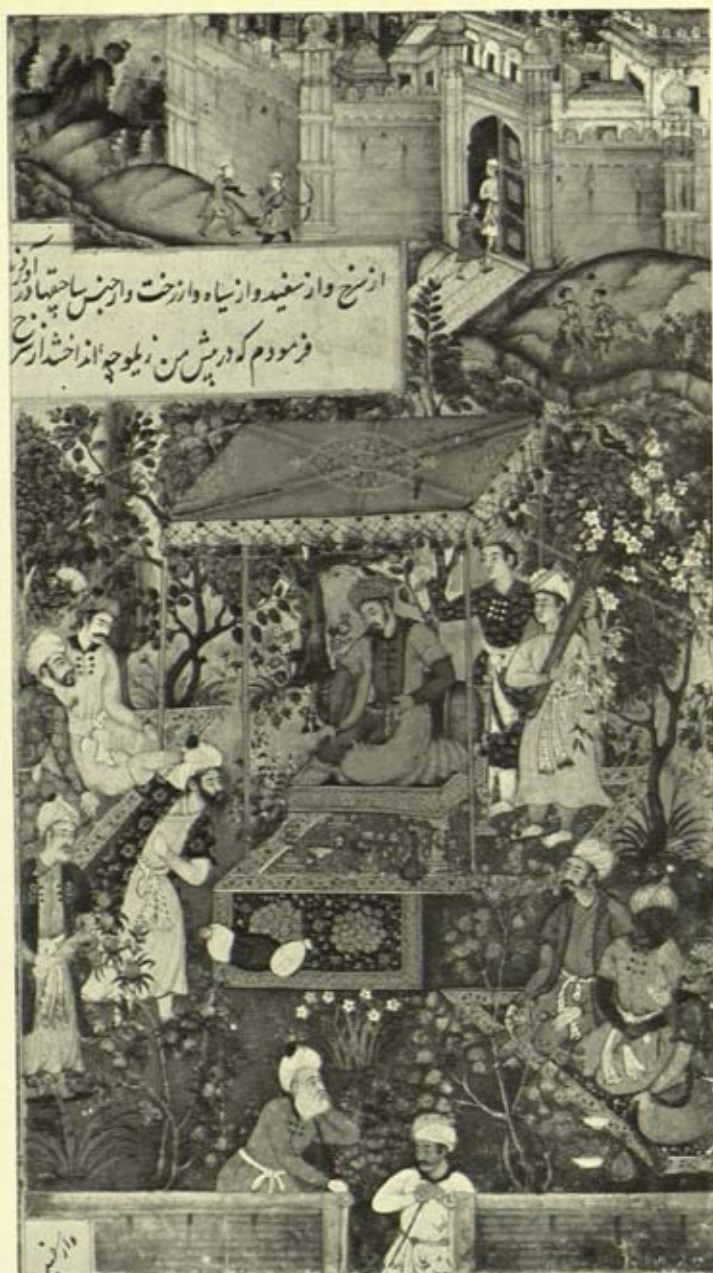 از سرخ و از سفید و از سیاه و از رخت و از جنس ساچقها در آورند
فرمودم که در پیش من زیلوچه انداختند از سرخ
واز سفید